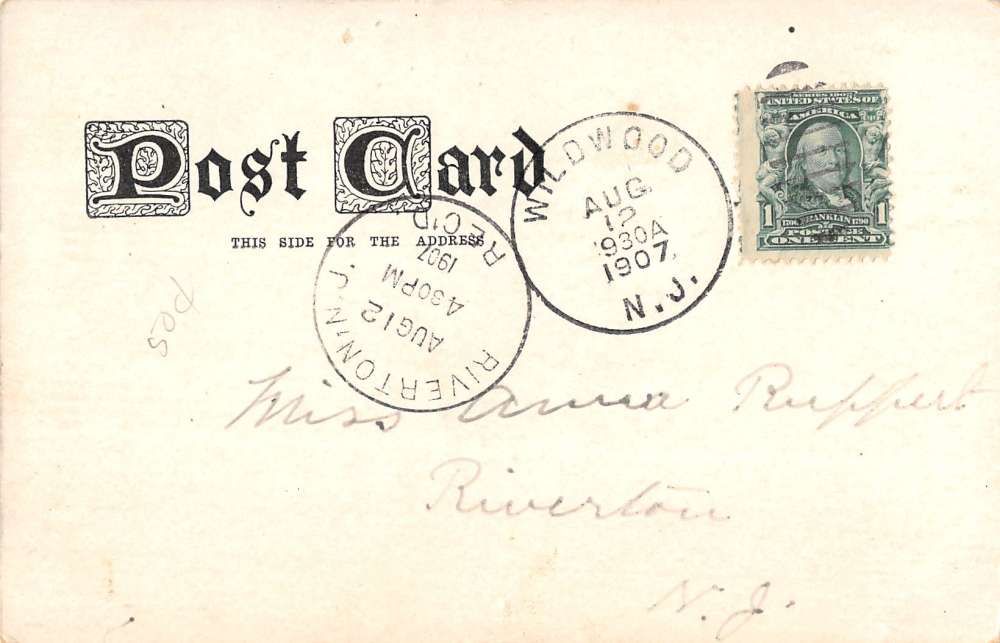 Post Card
THIS SIDE FOR THE ADDRESS
WILDWOOD
AUG
12
930A
1907
N.J.
SERIES 1902
UNITED STATES OF
AMERICA
1 1790 FRANKLIN 1790 1
POSTAGE
ONE CENT
REC'D
1907
430PM
AUG 12
RIVERTON, N.J.
Miss Anna Ruppert
Riverton
N. J.